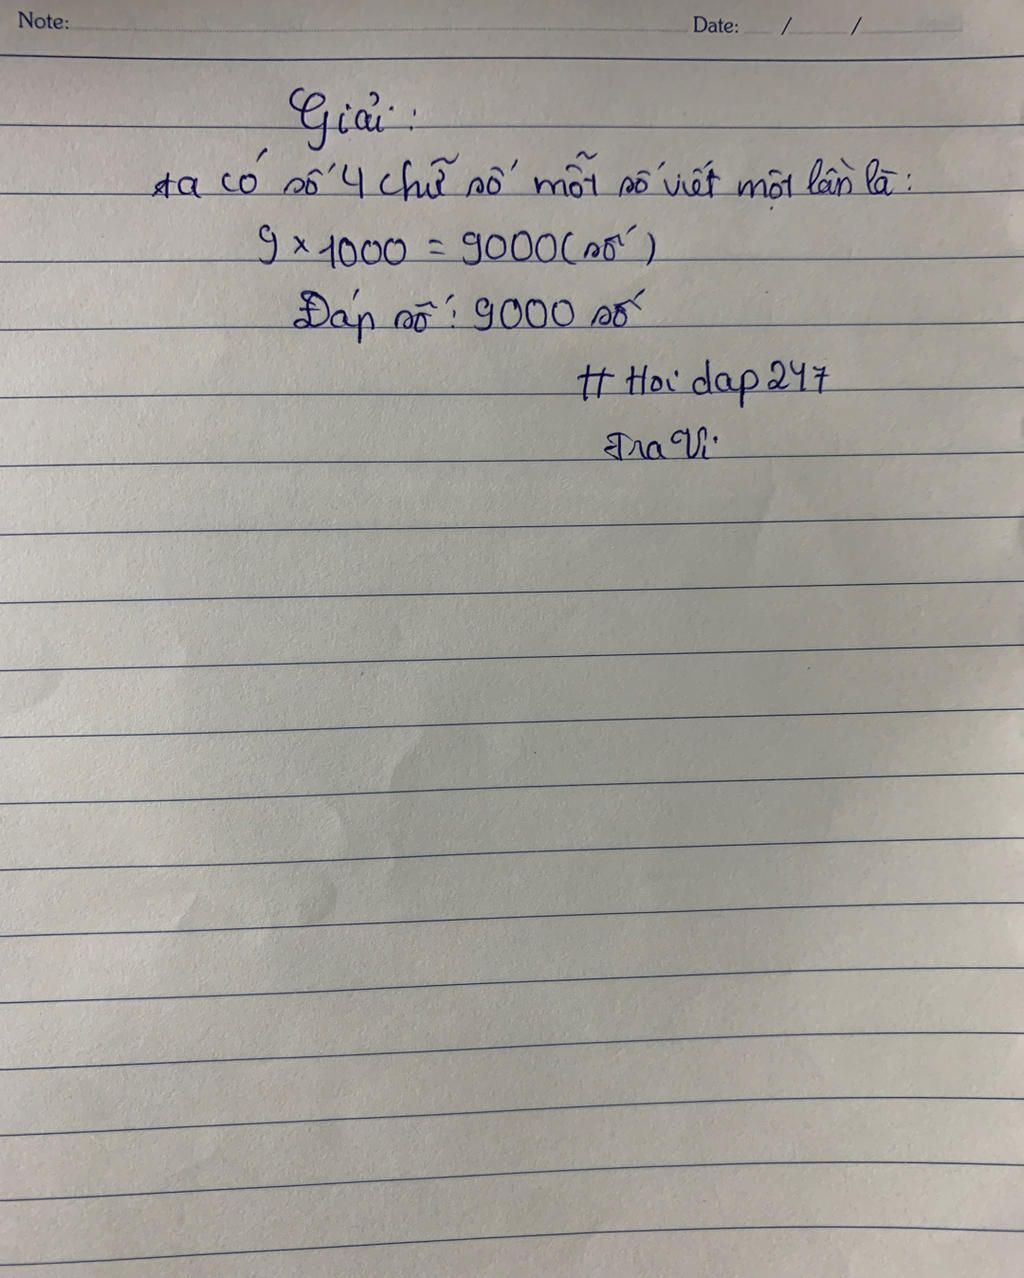 Note: Date: / /
Giải:
ta có số 4 chữ số mỗi số viết một lần là:
9 x 1000 = 9000 (số)
Đáp số: 9000 số
# Hoi dap 247
Tra Vi